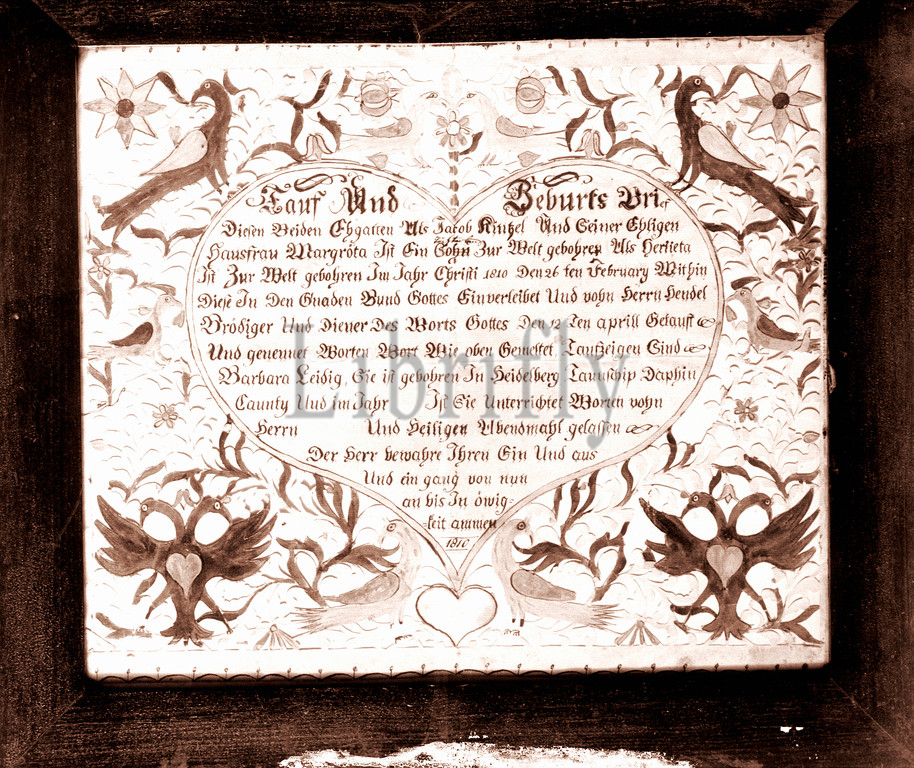 Tauf Und Geburts Brief
Diesen Beiden Ehgatten Als Jacob Küntzel Und Seiner Ehligen
Hausfrau Margröta Ist Ein Sohn Zur Welt gebohren Als
Ist Zur Welt gebohren Im Jahr Christi 1810 Den 26 ten February Mithin
Diese In Den Gnaden Bund Gottes Einverleibet Und vohn Herrn Hendel
Brödiger Und Diener Des Worts Gottes Den 12 Ten aprill Getauft
Und genennet Worten Wort Wie oben Gemeltet, Taufzeigen Sind
Barbara Leidig, Sie ist gebohren In Heidelberg Taunschip Daphin
Caunty Und im Jahr Ist Sie Unterrichtet Worten vohn
Herrn Und Heiligen Abendmahl gelassen
Der Herr bewahre Ihren Ein Und aus
Und ein gang von nun
an bis In öwig=
=keit ammen
1810
Librifly